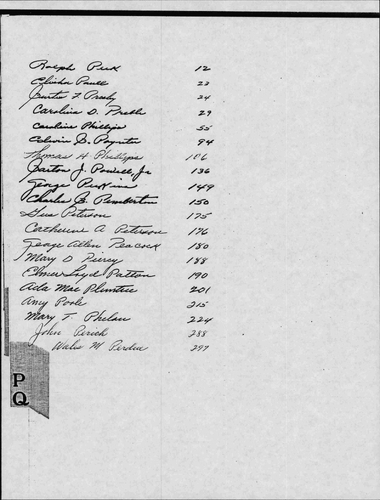 Ralph Peck 12
Elisha Paull 23
Curtis F. Presly 24
Carolina D. Preble 29
Caroline Phillips 55
Edwin G. Poynter 94
Thomas H. Phelipps 106
Barton J. Powell, Jr 136
George Perkins 149
Charles B. Pemberton 150
Gus Peterson 175
Catherine A Peterson 176
George Allen Peacock 180
Mary D Piercy 188
Elmer Loyd Patton 190
Ada Mae Plumtree 201
Amy Poole 215
Mary T. Phelan 224
John Perich 288
M. Perdue 297
P
Q